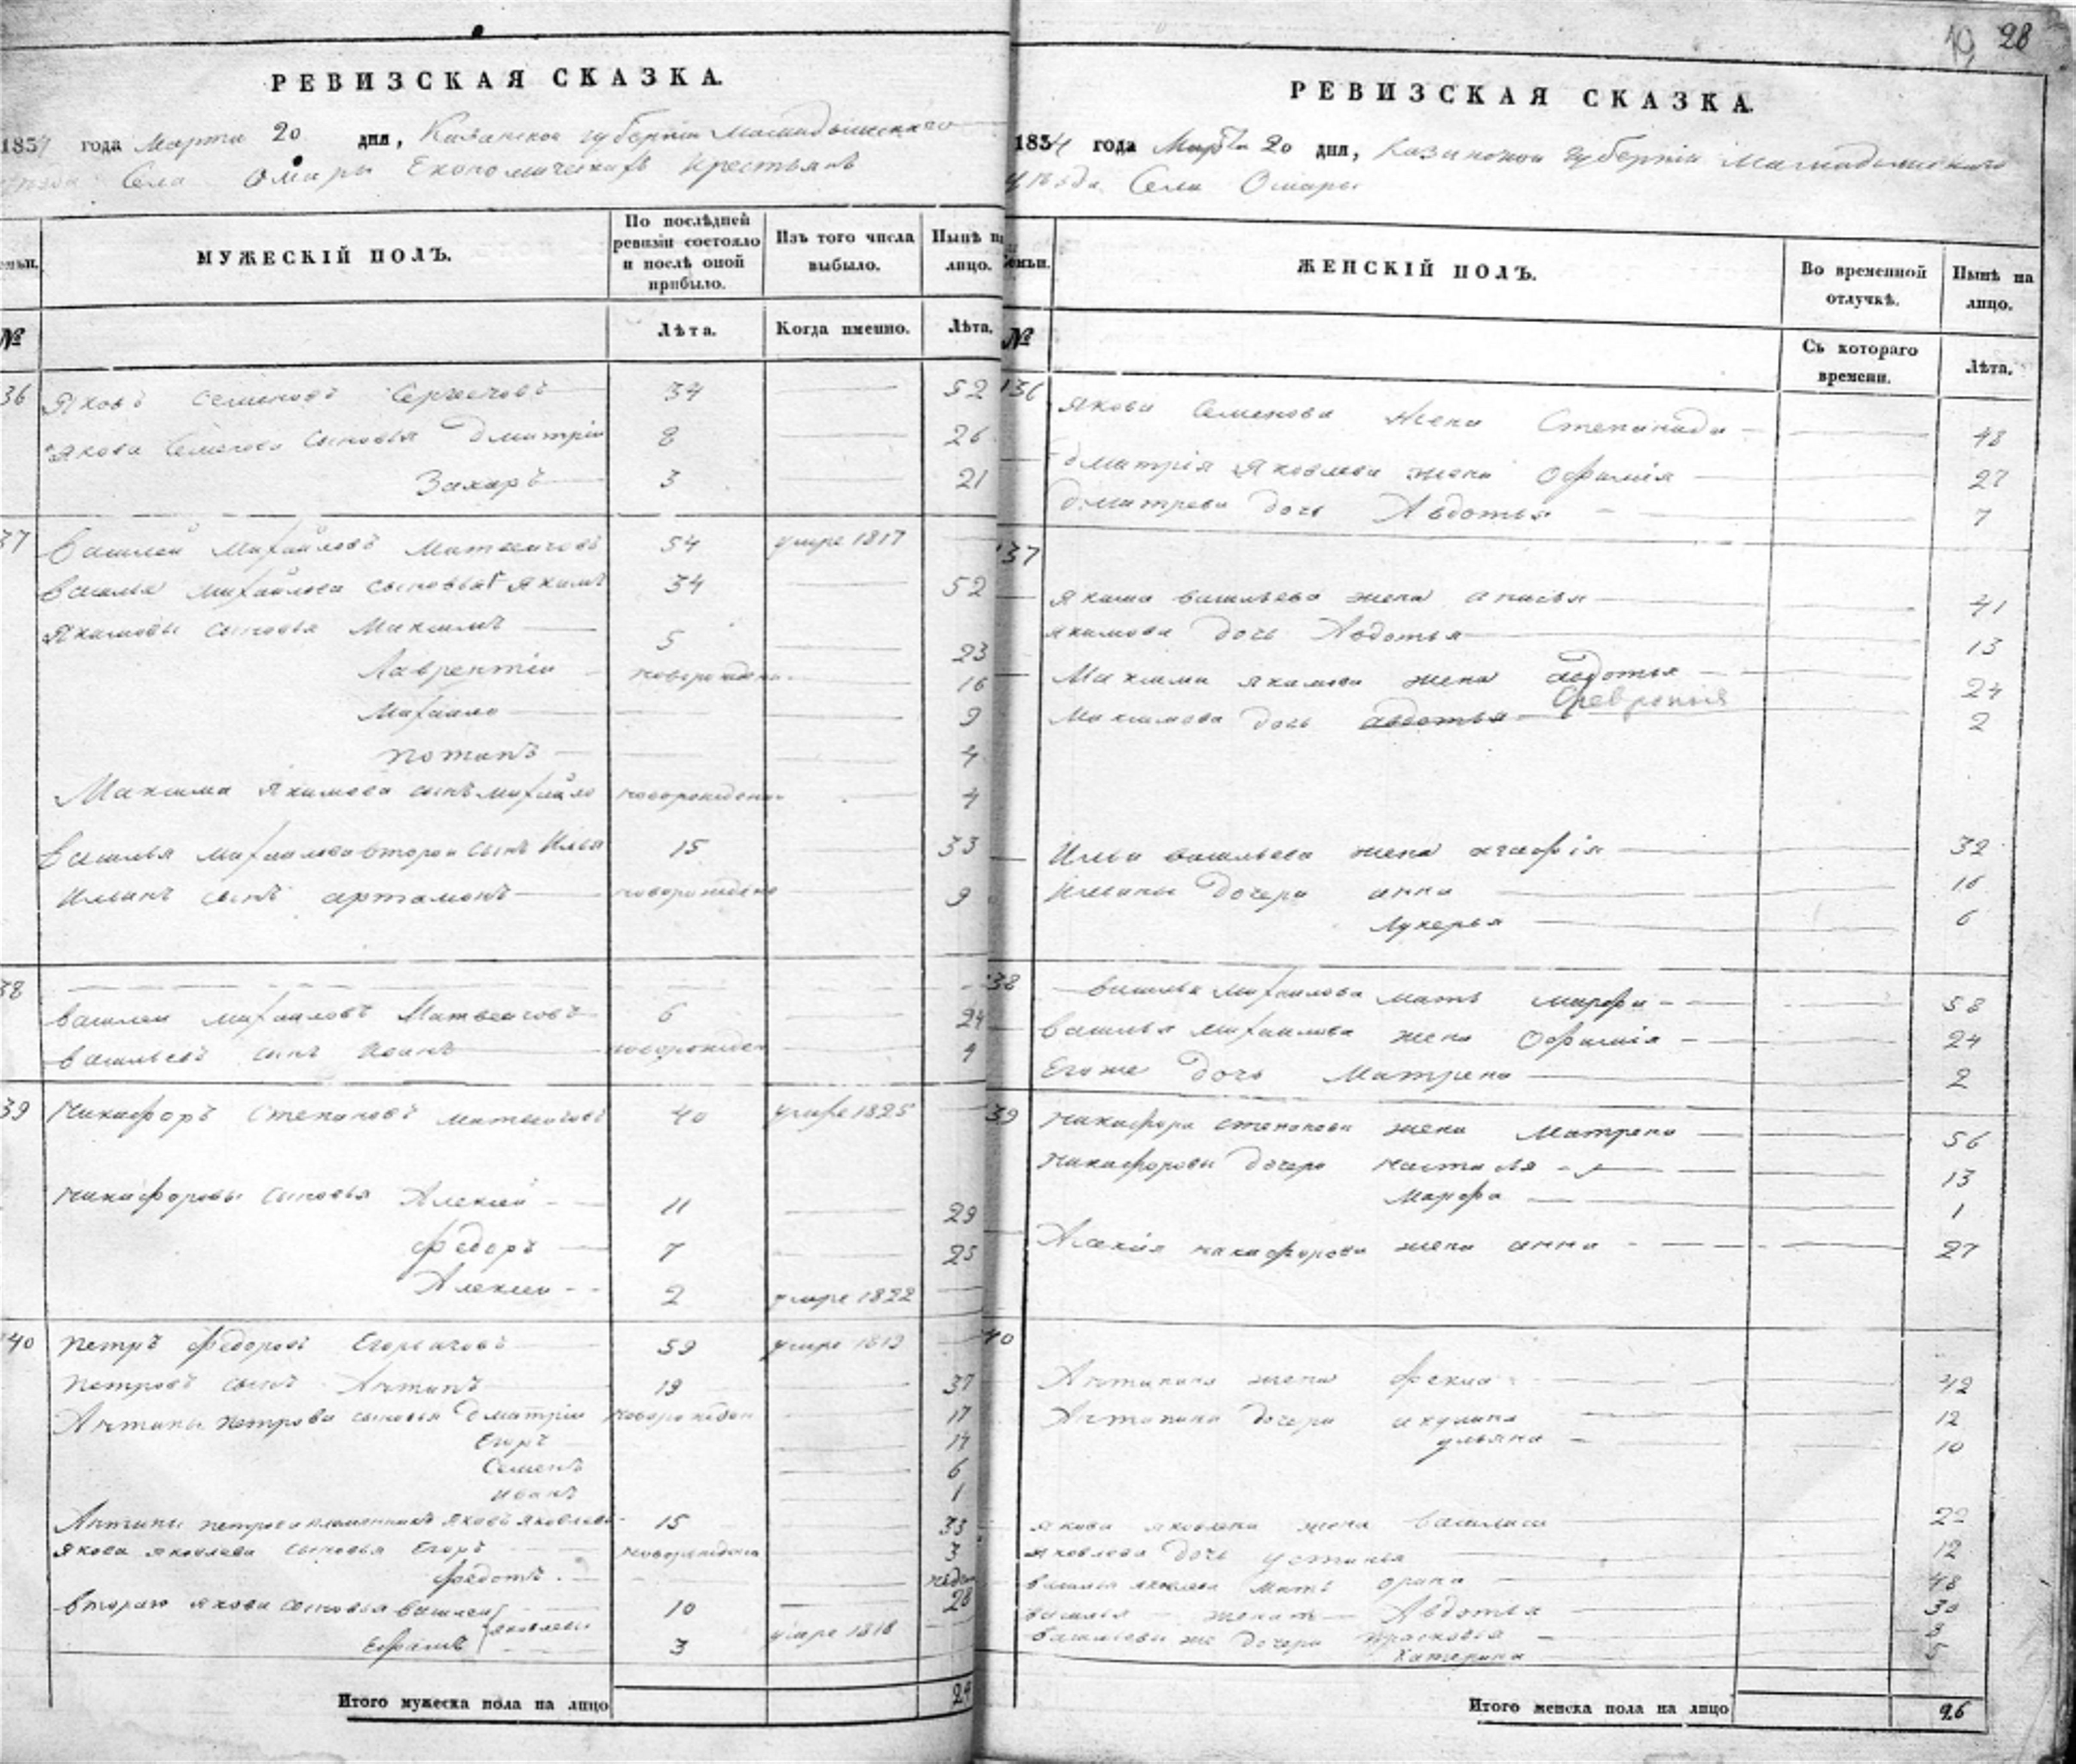 РЕВИЗСКАЯ СКАЗКА.
1834 года Марта 20 дня, Казанской губернии Мамадышскаго
уезда Села Омары Економическихъ крестьянъ
МУЖЕСКІЙ ПОЛЪ.
По послѣдней ревизіи состояло и послѣ оной прибыло.
Изъ того числа выбыло.
Нынѣ на лицо.
№
Лѣта.
Когда именно.
Лѣта.
36 Яковъ Семеновъ Сергеечовъ 34 52
Якова Семенова сыновья Дмитріи 8 26
Захаръ 3 21
37 Василей Михайловъ Матвеичовъ 54 умре 1817
Василья Михайлова сыновья 1 Якимъ 34 52
Якимовы сыновья Максимъ 5 23
Лаврентіи новорожденн. 16
Михаило 9
Потапъ 4
Максима Якимова сынъ Михайло новорожденн 4
Василья Михаилова второи сынъ Илья 15 33
Ильинъ сынъ Артамонъ новорожденн 9
38
Василеи Михаиловъ Матвеичовъ 6 24
Васильевъ сынъ Иванъ новорожден 4
39 Никифоръ Степановъ Матвеичовъ 40 умре 1825
Никифоровы сыновья Алексеи 11 29
Федоръ 7 25
Алексеи 2 умре 1822
40 Петръ Федоровъ Егорычовъ 59 умре 1819
Петровъ сынъ Антипъ 19 37
Антипы Петрова сыновья Дмитріи новорожден 17
Егоръ 14
Семенъ 6
Иванъ 1
Антипы Петрова племянникъ Яковъ Яковлевъ 15 33
Якова Яковлева сыновья Егоръ новорожденн 3
Федотъ недел
Втораго Якова сыновья Василеи Яковлевы 10 28
Ефимъ 3 умре 1818
Итого мужеска пола на лицо 24
19 28
РЕВИЗСКАЯ СКАЗКА.
1834 года Марта 20 дня, Казанской губерніи Мамадышскаго
уѣзда Села Омары
Семьи.
ЖЕНСКІЙ ПОЛЪ.
Во временной отлучкѣ.
Нынѣ на лицо.
№
Съ котораго времени.
Лѣта.
136 Якова Семенова жена Степанида 48
Дмитрія Яковлева жена Офимія 27
Дмитрева дочь Авдотья 7
137
Якима Васильева жена Анисья 41
Якимова дочь Авдотья 13
Максима Якимова жена Авдотья 24
Максимова дочь Авдотья Февронія 2
Ильи Васильева жена Агафія 32
Ильины дочери Анна 16
Лукерья 6
138 Василья Михаилова мать Марфа 58
Василья Михаилова жена Офимія 24
Егоже дочь Матрена 2
139 Никифора Степанова жена Матрена 56
Никифоровы дочери Настасья 13
Марфа 1
Алексія Никифорова жена Анна 27
40
Антипина жена Фекла 42
Антипины дочери Акулина 12
Ульяна 10
Якова Яковлева жена Василиса 22
Яковлева дочь Устинья 12
Василья Яковлева мать Орина 48
Василья жена Авдотья 30
Васильевы же дочери Прасковья 8
Катерина 5
Итого женска пола на лицо 26